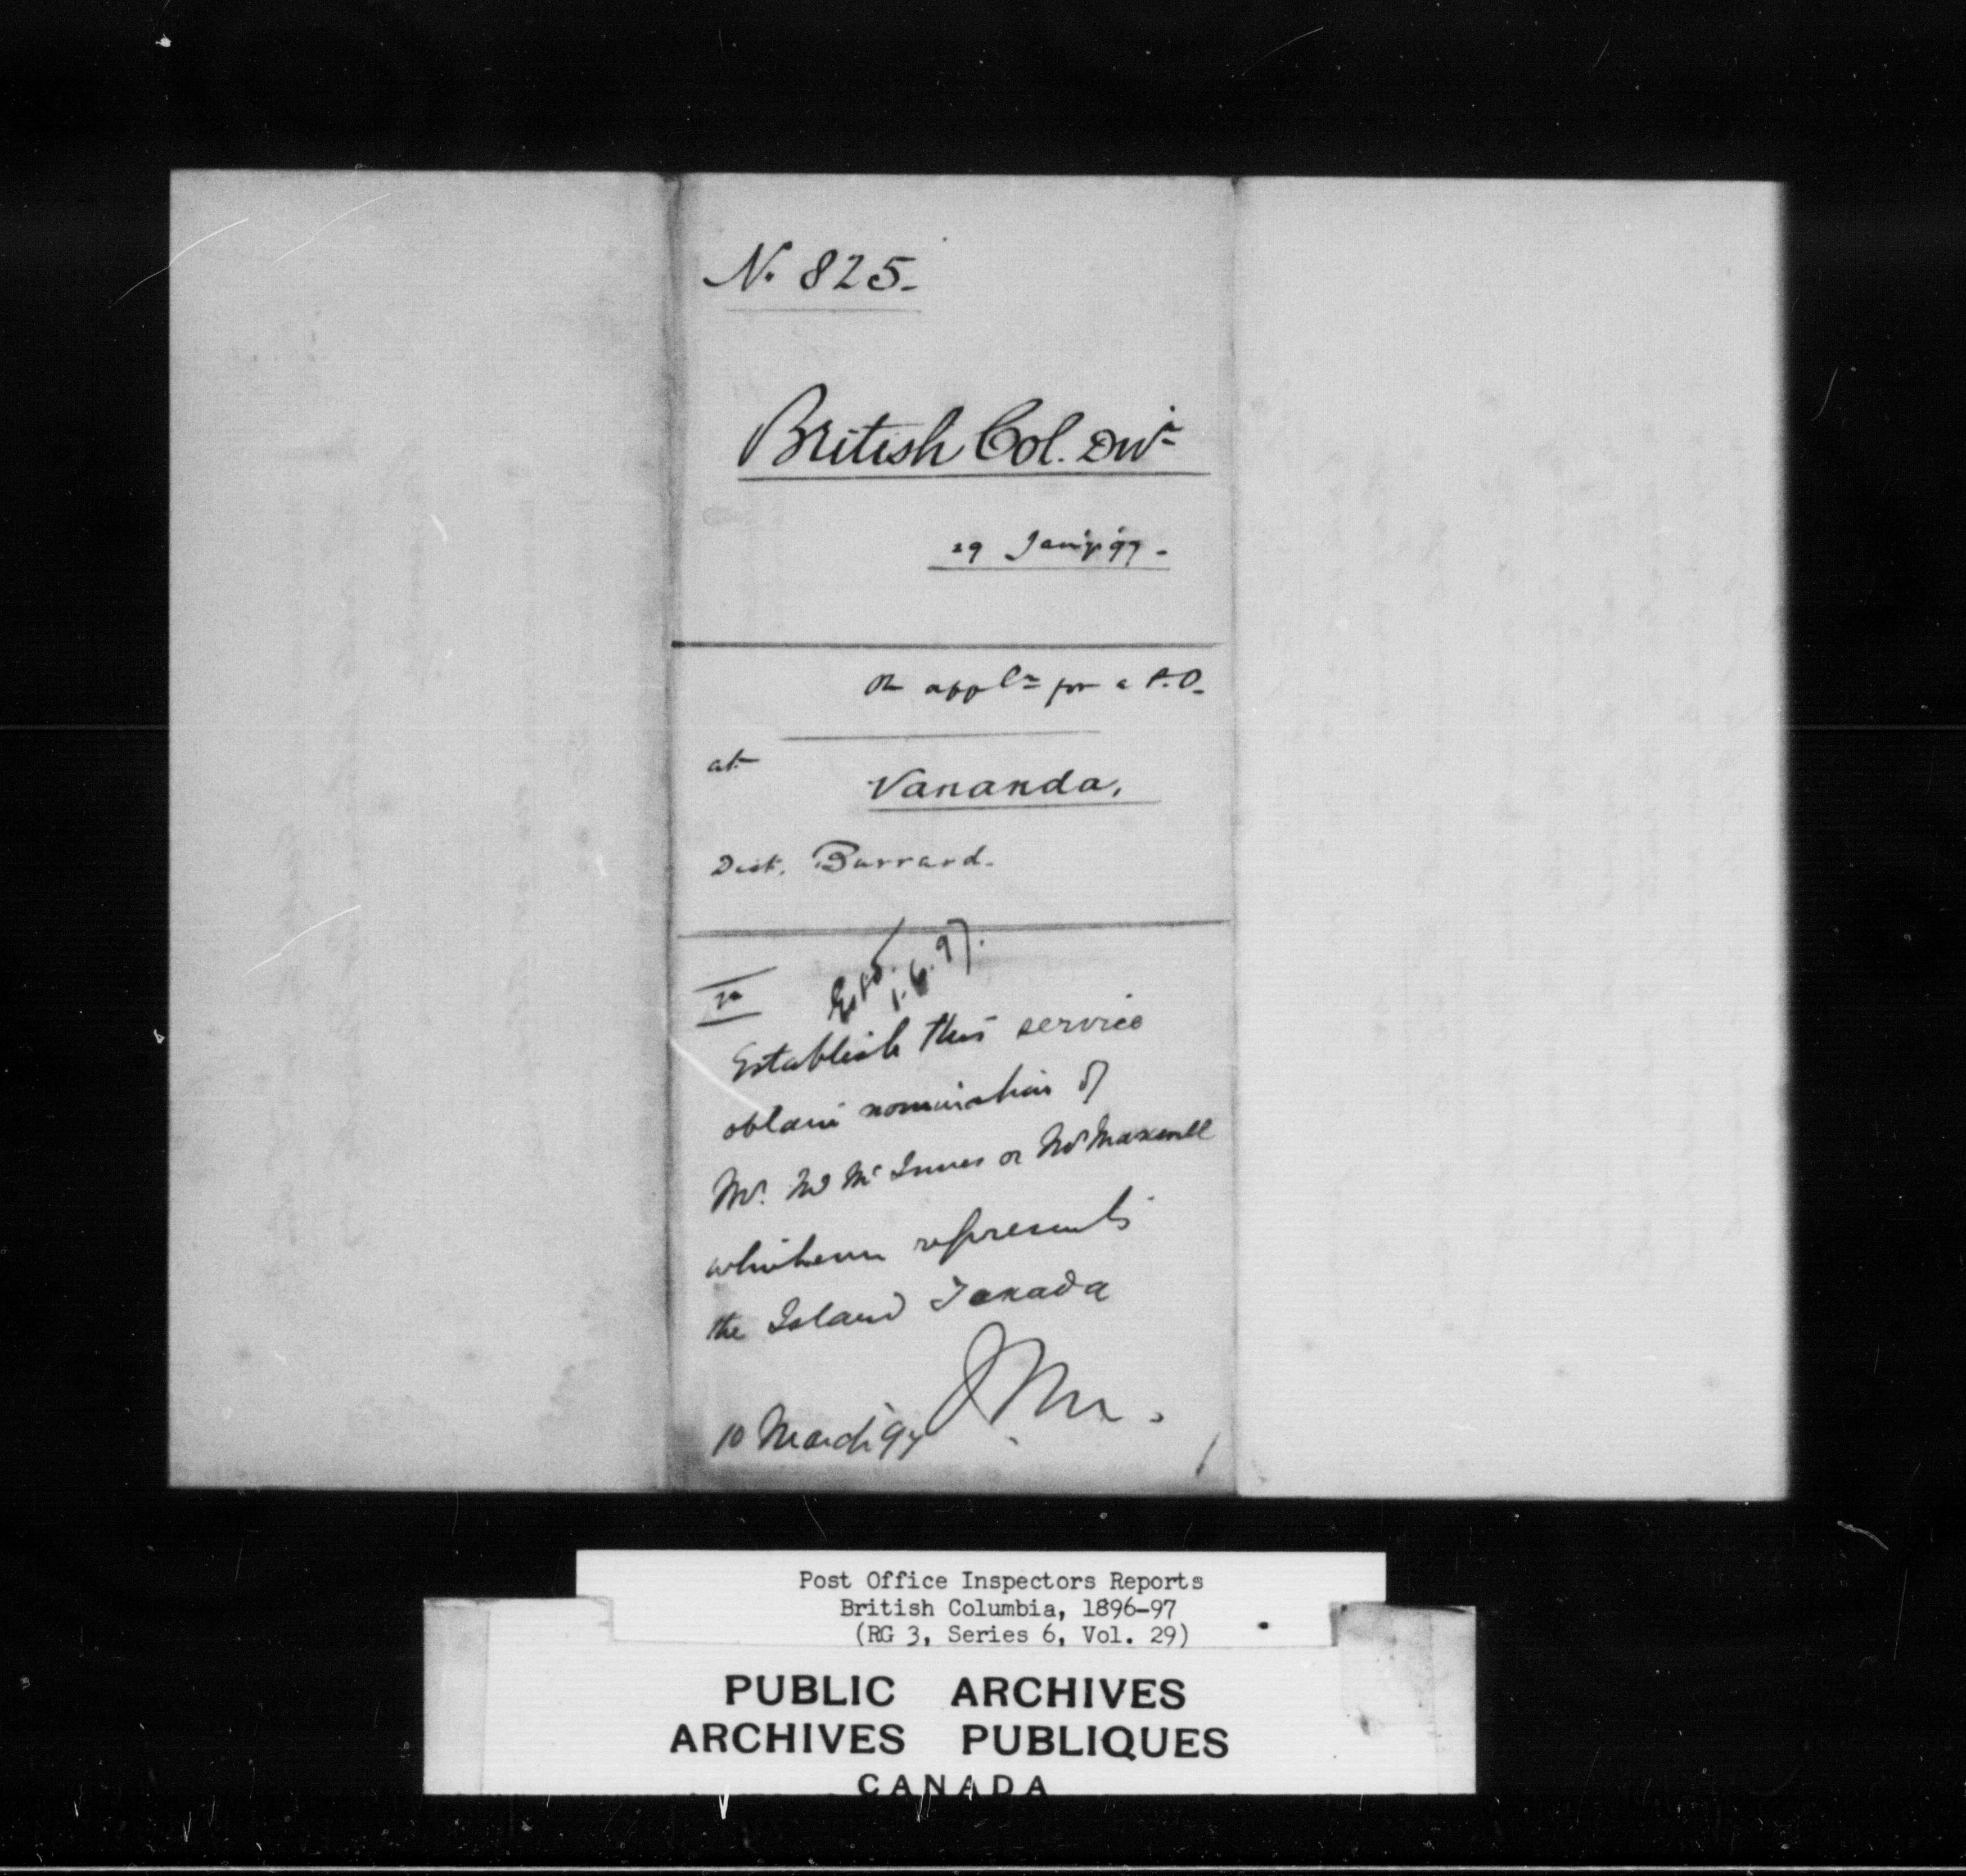 N. 825.
British Col. Divn
29 Jany 97.
On appln for a P.O.
at
Vananda.
Dist. Burrard.
Estd.
1.6.97.
Establish this service
obtain nomination of
Mr. McInnes or Mr Maxwell
whichever represents
the Island Texada
10 March 97
Post Office Inspectors Reports
British Columbia, 1896-97
(RG 3, Series 6, Vol. 29)
PUBLIC ARCHIVES
ARCHIVES PUBLIQUES
CANADA